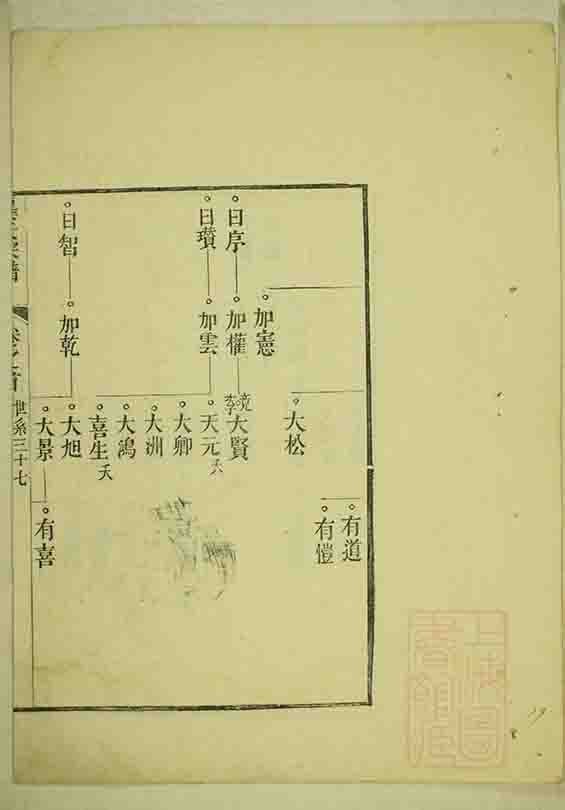 有道
有愷
大松
加憲
曰序
加權
大賢
曰瓚
加雲
天元夭
大卿
大洲
大鴻
喜生夭
曰智
加乾
大旭
大景
有喜
世系三十七
上海圖書館藏